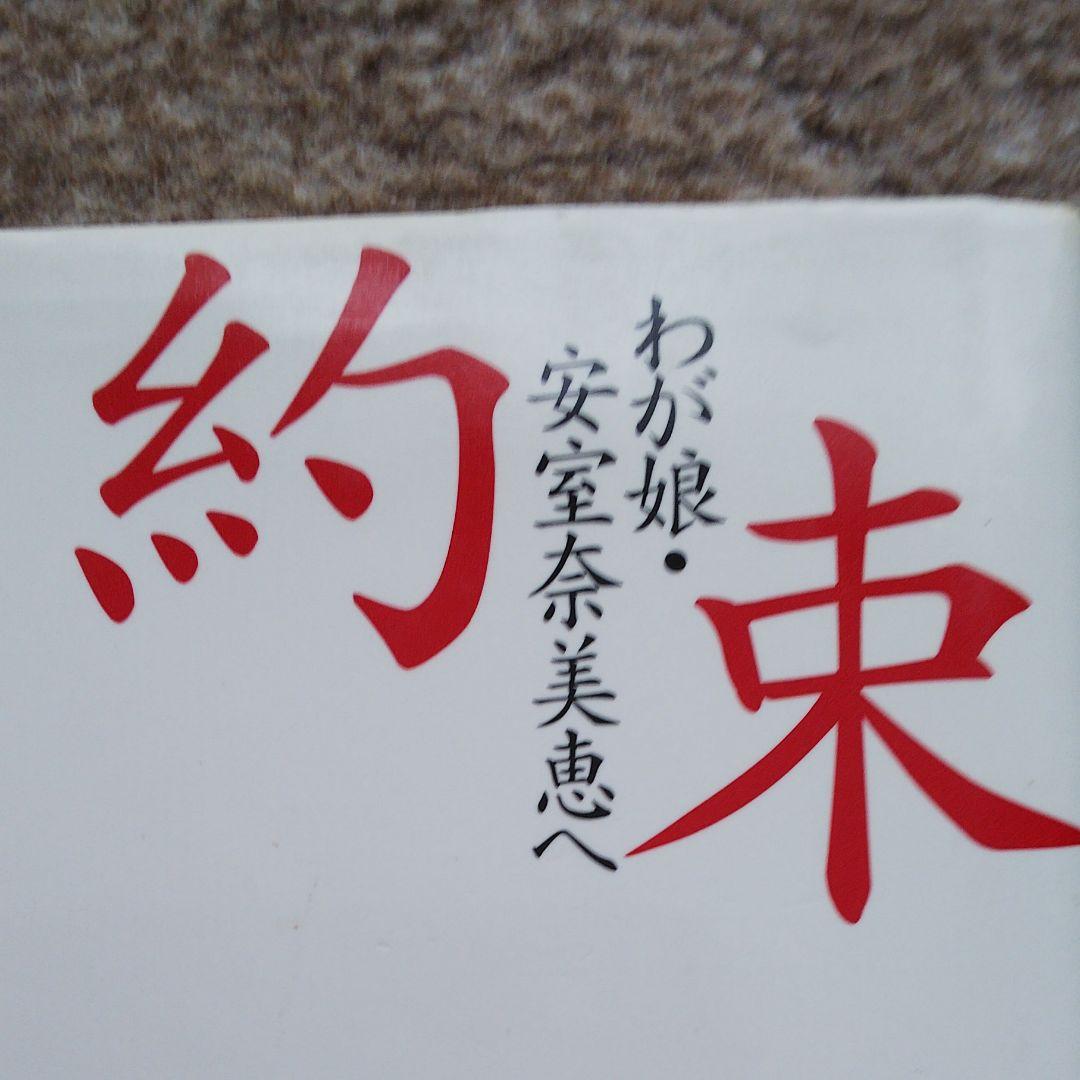 約束
わが娘・
安室奈美恵へ